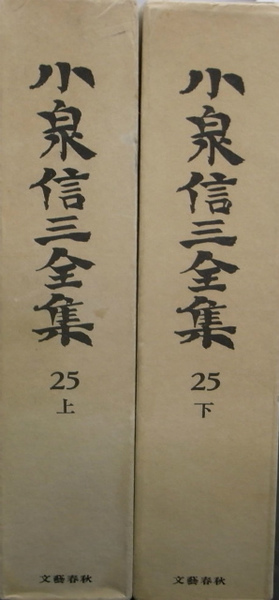 小泉信三全集
25
上
文藝春秋
小泉信三全集
25
下
文藝春秋